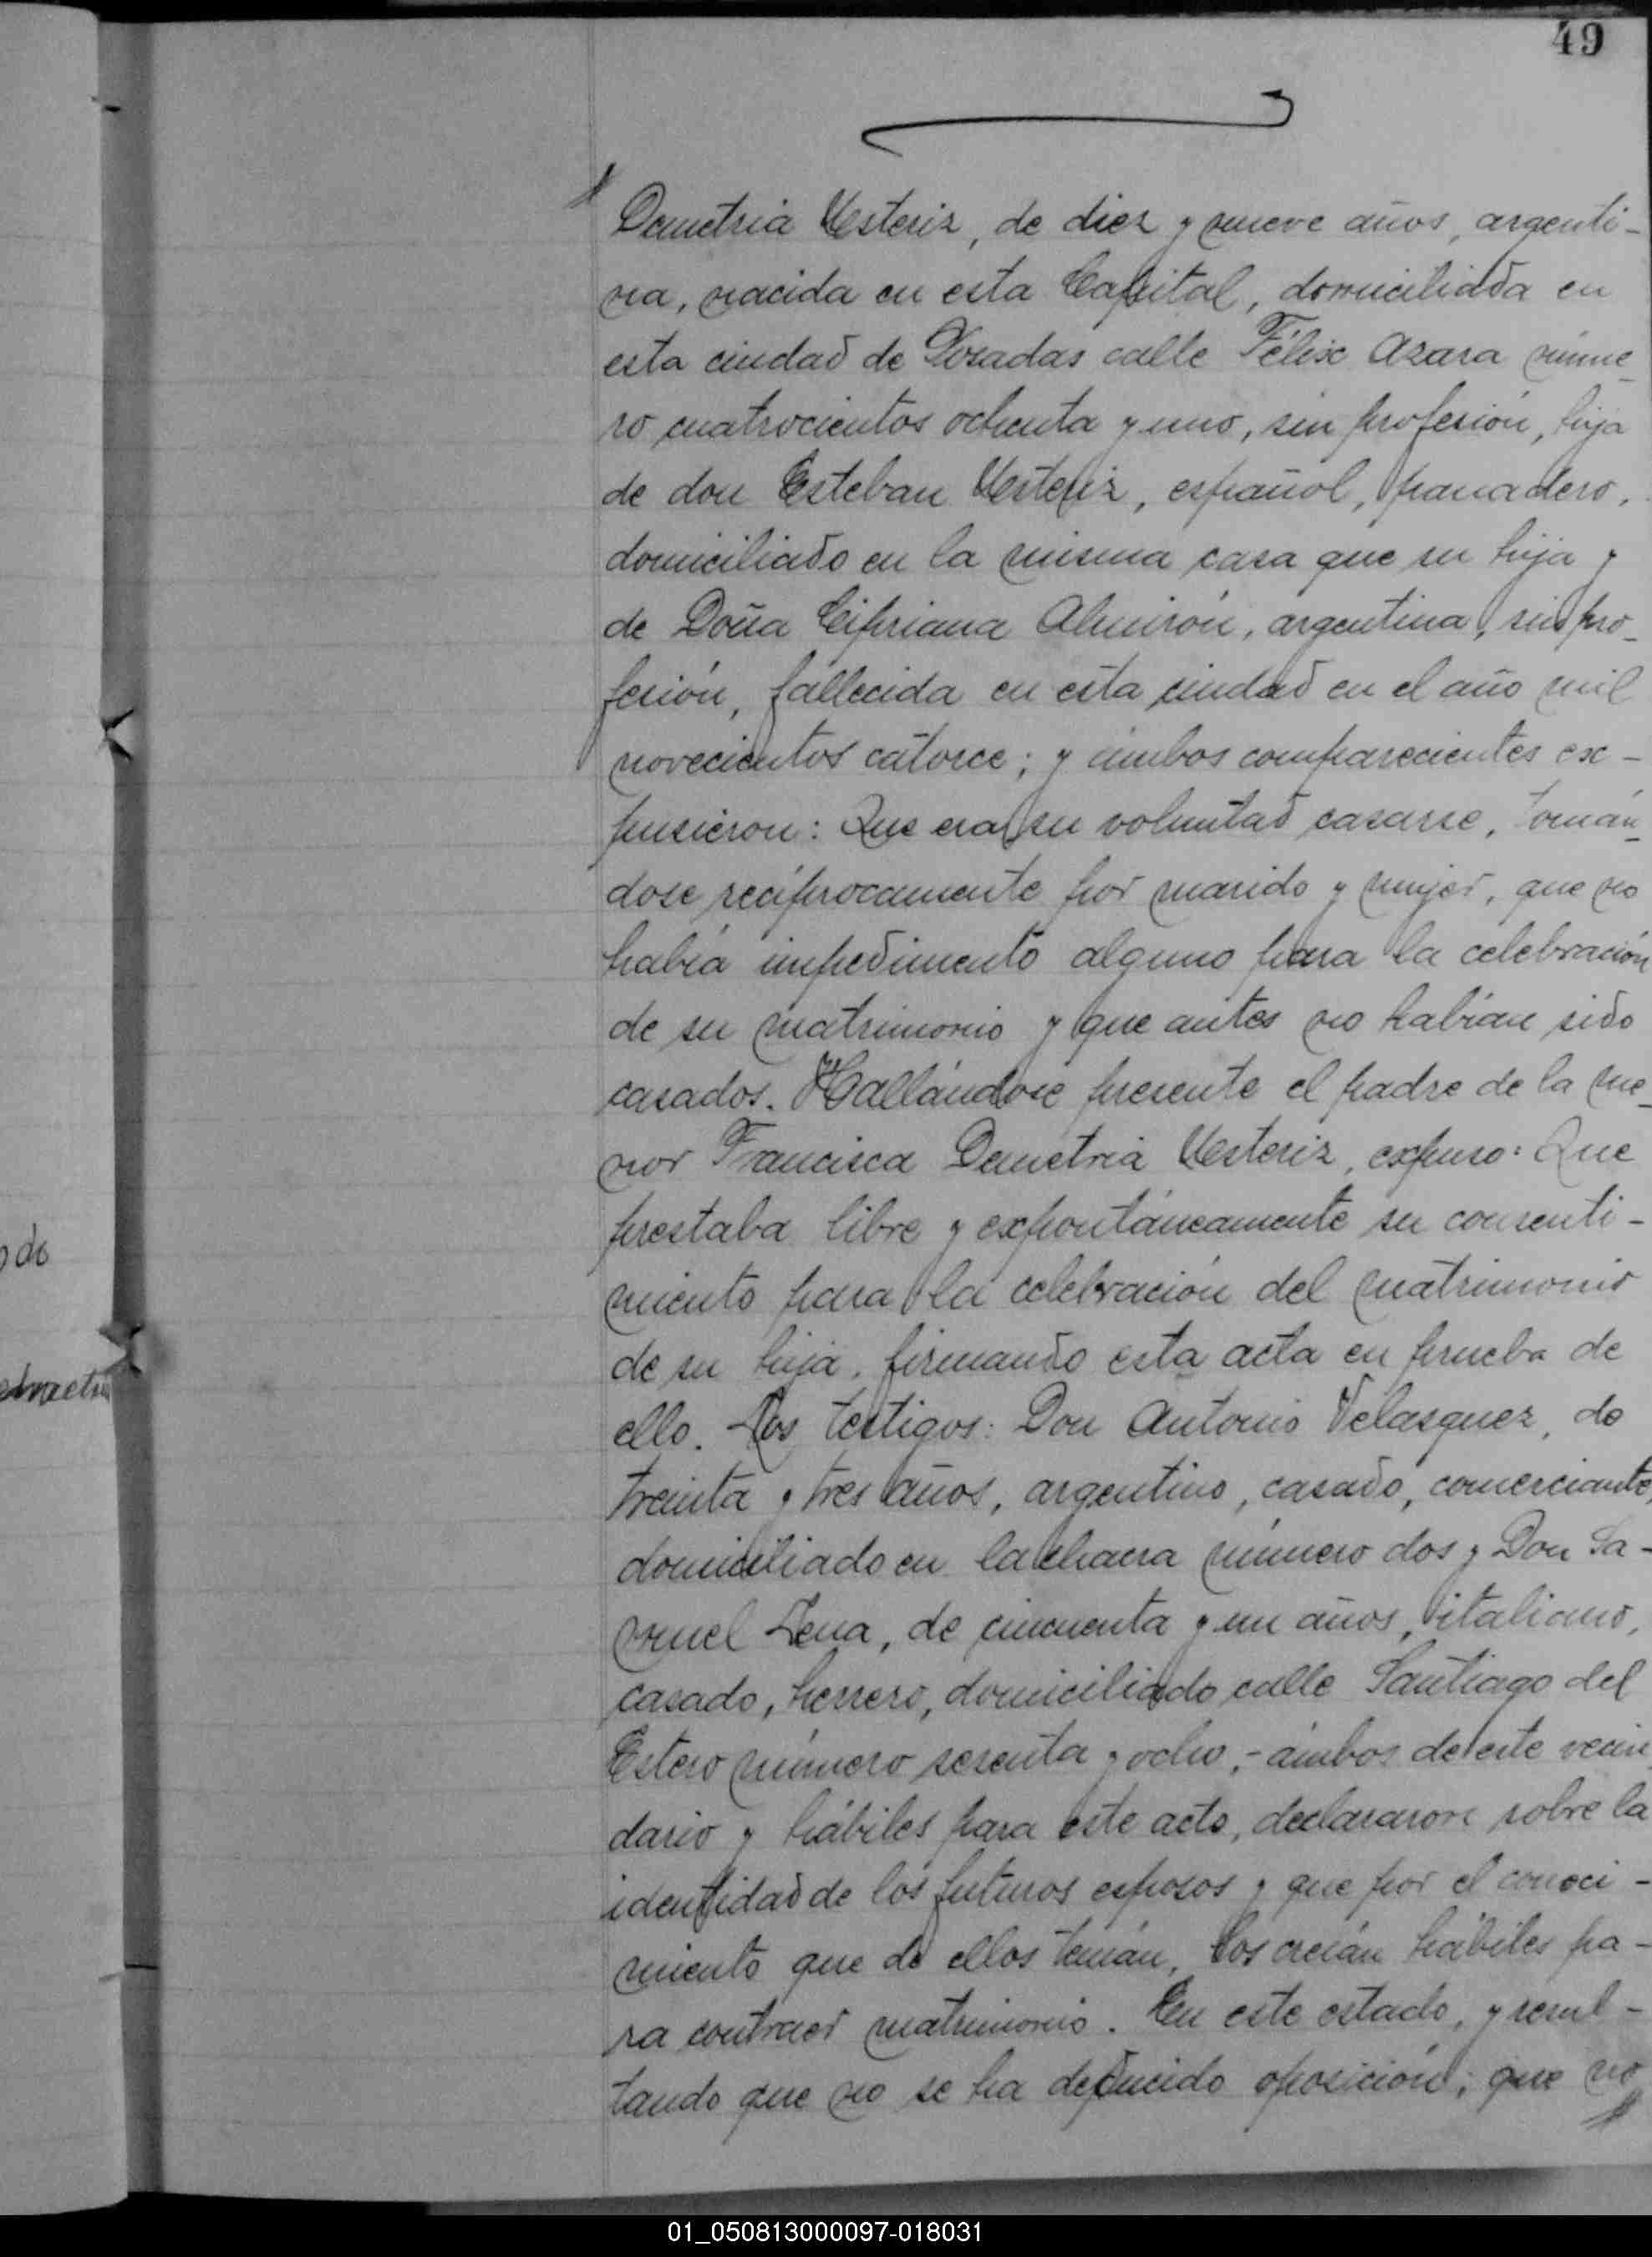 49
Demetria Vesteriz, de diez y nueve años, argenti-
na, nacida en esta Capital, domiciliada en
esta ciudad de Posadas calle Félix Azara núme_
ro cuatrocientos ochenta y uno, sin profesión, hija
de don Esteban Vesteriz, español, panadero,
domiciliado en la misma casa que su hija y
de Doña Cipriana Almirón, argentina, sin pro_
fesión, fallecida en esta ciudad en el año mil
novecientos catorce; y ámbos comparecientes ex-
pusieron: Que era su voluntad casarse, tomán_
dose recíprocamente por marido y mujer, que no
había impedimento alguno para la celebración
de su matrimonio y que antes no habían sido
casados. Hallándose presente el padre de la me_
nor Francisca Demetria Vesteriz, expuso: Que
prestaba libre y expontáneamente su consenti-
miento para la celebración del matrimonio
de su hija, firmando esta acta en prueba de
ello. Los testigos: Don Antonio Velasquez, de
treinta y tres años, argentino, casado, comerciante,
domiciliado en la chacra número dos y Don Sa-
muel Zena, de cincuenta y un años, italiano,
casado, herrero, domiciliado calle Santiago del
Estero número sesenta y ocho,- ámbos de este vecin_
dario y hábiles para este acto, declararon sobre la
identidad de los futuros esposos y que por el conoci-
miento que de ellos tenían, los creían hábiles pa-
ra contraer matrimonio. En este estado, y resul-
tando que no se ha deducido oposición; que no
do
01_050813000097-018031